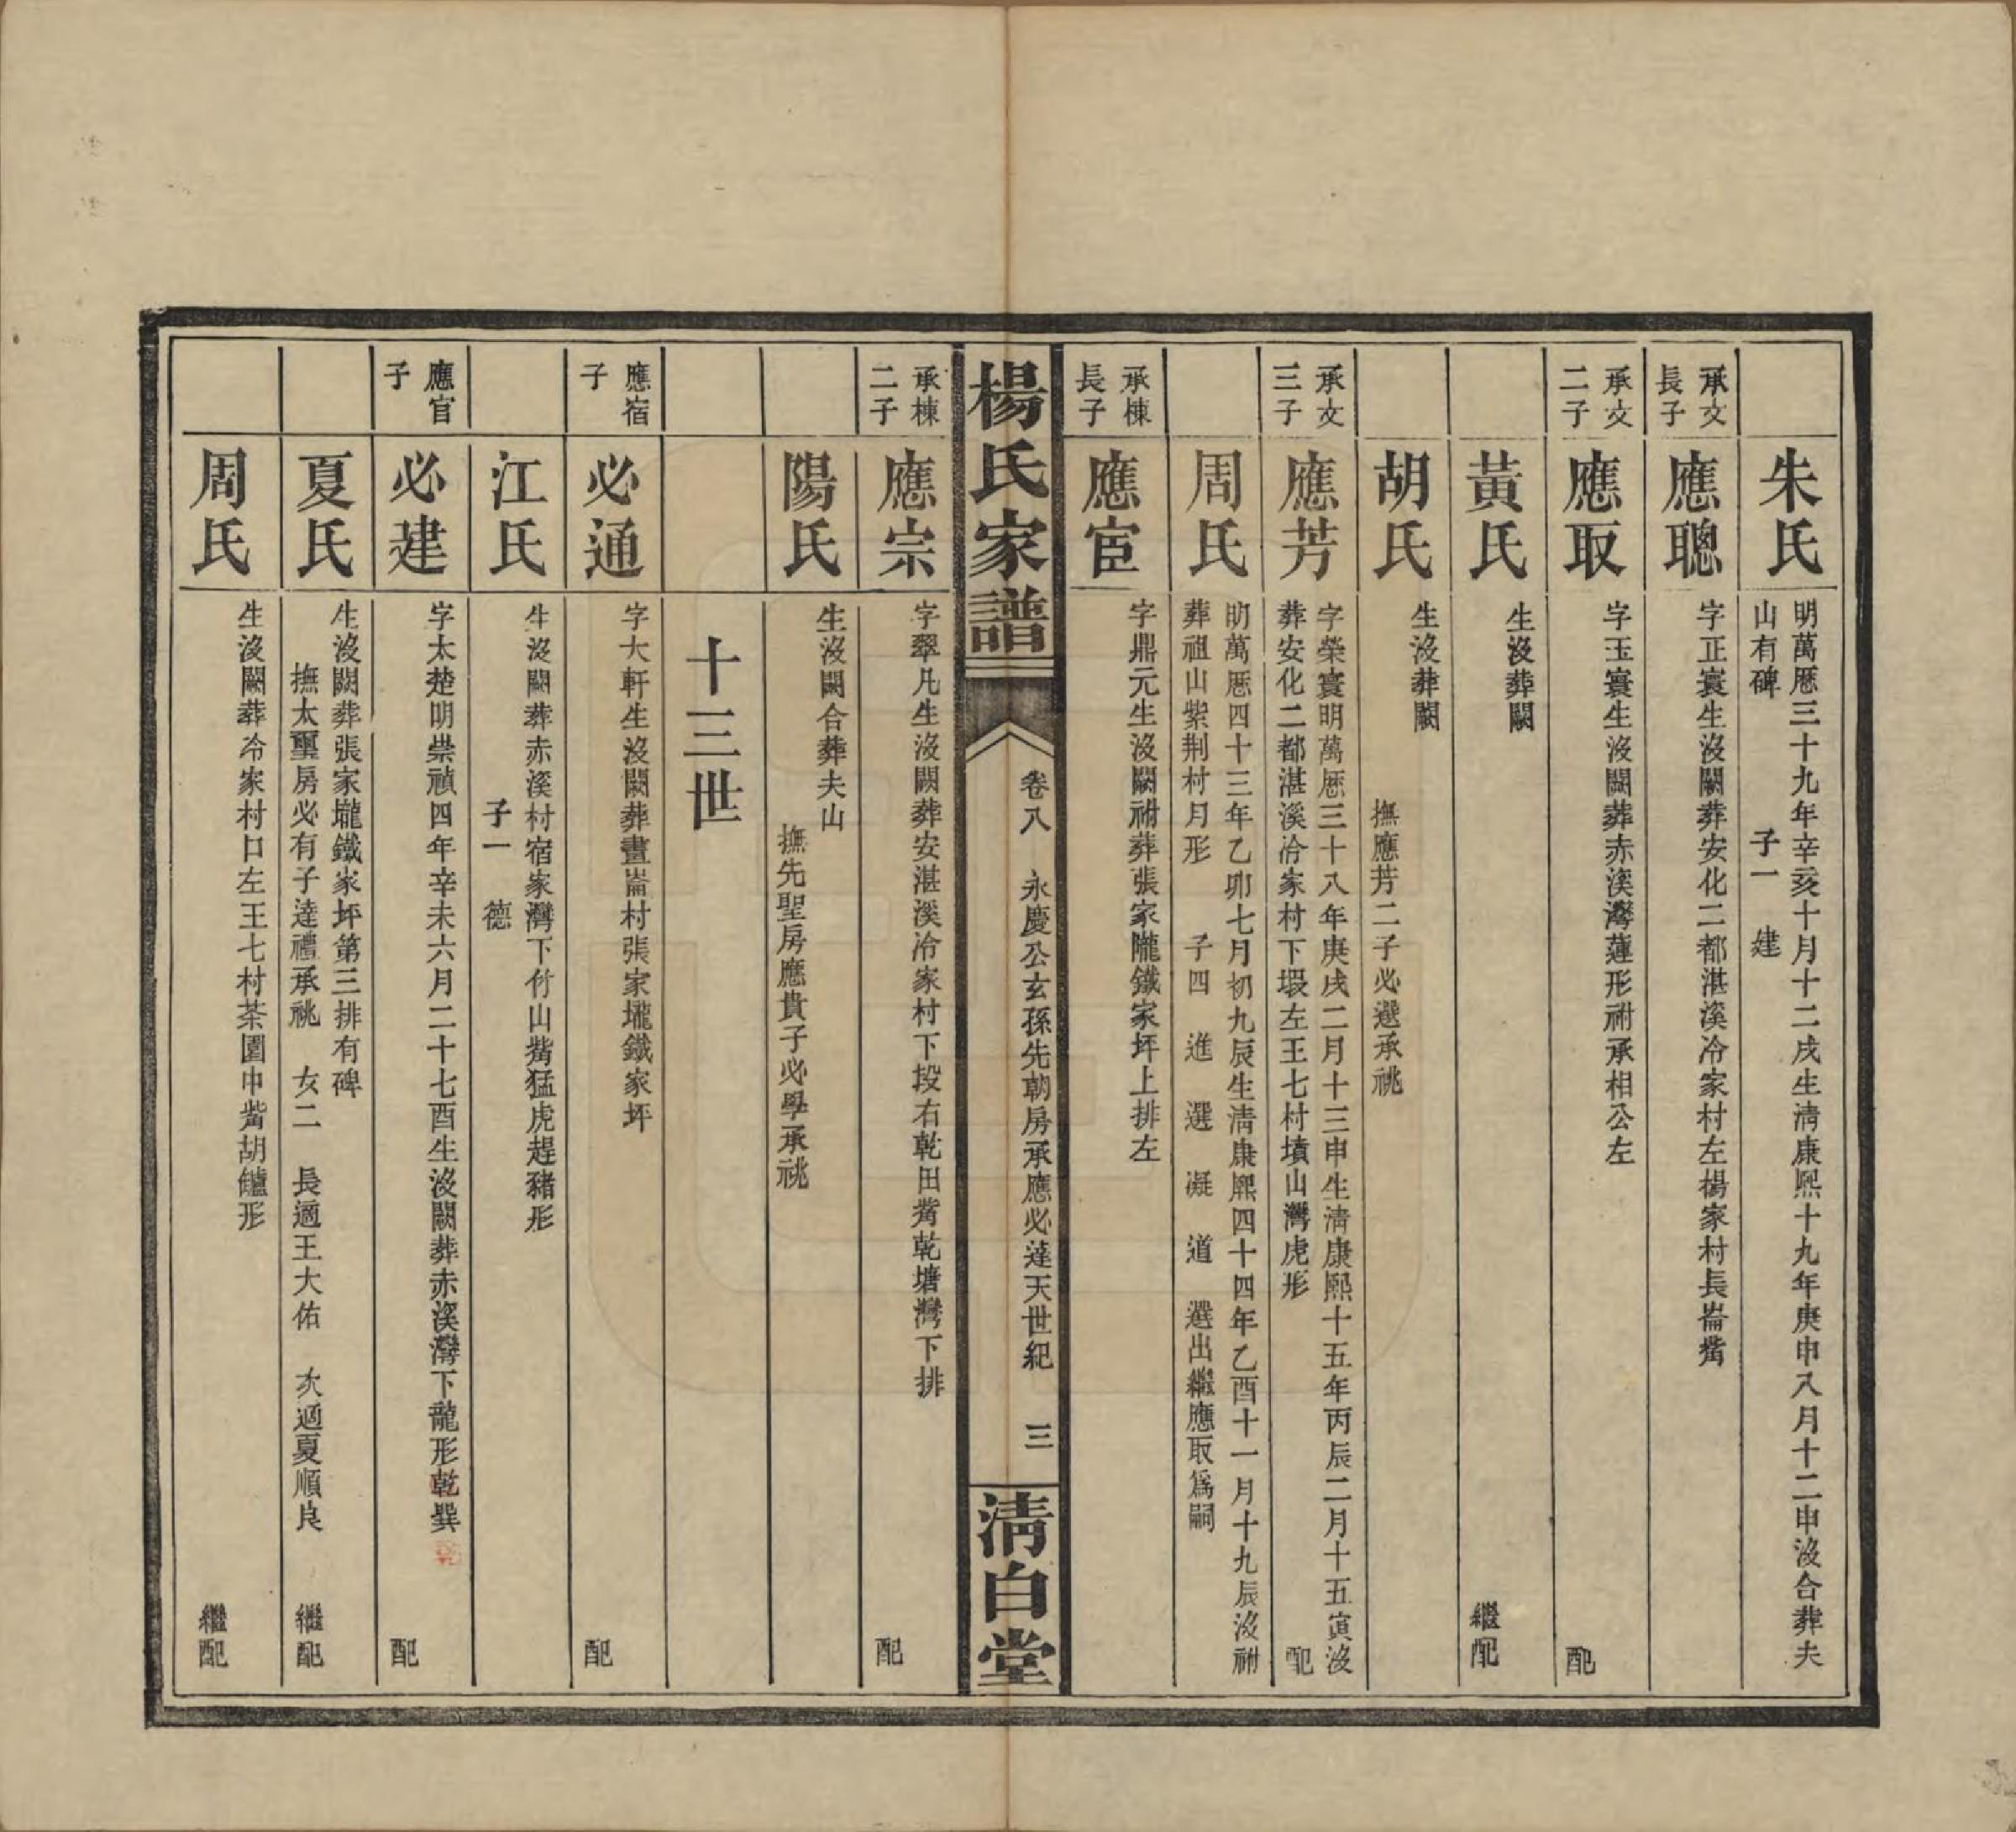 朱氏
明萬厯三十九年辛亥十月十二戌生清康熙十九年庚申八月十二申沒合葬夫
山有碑　子一　建
承文
長子
應聰
字正寰生沒闕葬安化二都湛溪冷家村左楊家村長崙觜
承文
二子
應取
字玉寰生沒闕葬赤溪灣蓮形祔承相公左
配
黃氏
生沒葬闕
繼配
胡氏
生沒葬闕
撫應芳二子必選承祧
承文
三子
應芳
字榮寰明萬厯三十八年庚戌二月十三申生清康熙十五年丙辰二月十五寅沒
葬安化二都湛溪冾家村下塅左王七村墳山灣虎形
配
周氏
明萬厯四十三年乙卯七月初九辰生清康熙四十四年乙酉十一月十九辰沒祔
葬祖山紫荆村月形　子四　進　選　凝　道　選出繼應取爲嗣
承棟
長子
應宦
字鼎元生沒闕祔葬張家隴鐵家坪上排左
楊氏家譜
卷八　永慶公玄孫先朝房承應必達天世紀　三
清白堂
承棟
二子
應宗
字翠凡生沒闕葬安湛溪冷家村下段右乾田觜乾塘灣下排
配
陽氏
生沒闕合葬夫山
撫先聖房應貴子必學承祧
十三世
應宿
子
必通
字大軒生沒闕葬晝崙村張家壠鐵家坪
配
江氏
生沒闕葬赤溪村宿家灣下付山觜猛虎趕豬形
子一　德
應官
子
必建
字太楚明崇禎四年辛未六月二十七酉生沒闕葬赤溪灣下龍形乾巽
配
夏氏
生沒闕葬張家壠鐵家坪第三排有碑
撫太璽房必有子達禮承祧　女二　長適王大佑　次適夏順良
繼配
周氏
生沒闕葬冷家村口左王七村茶園中觜胡鑪形
繼配